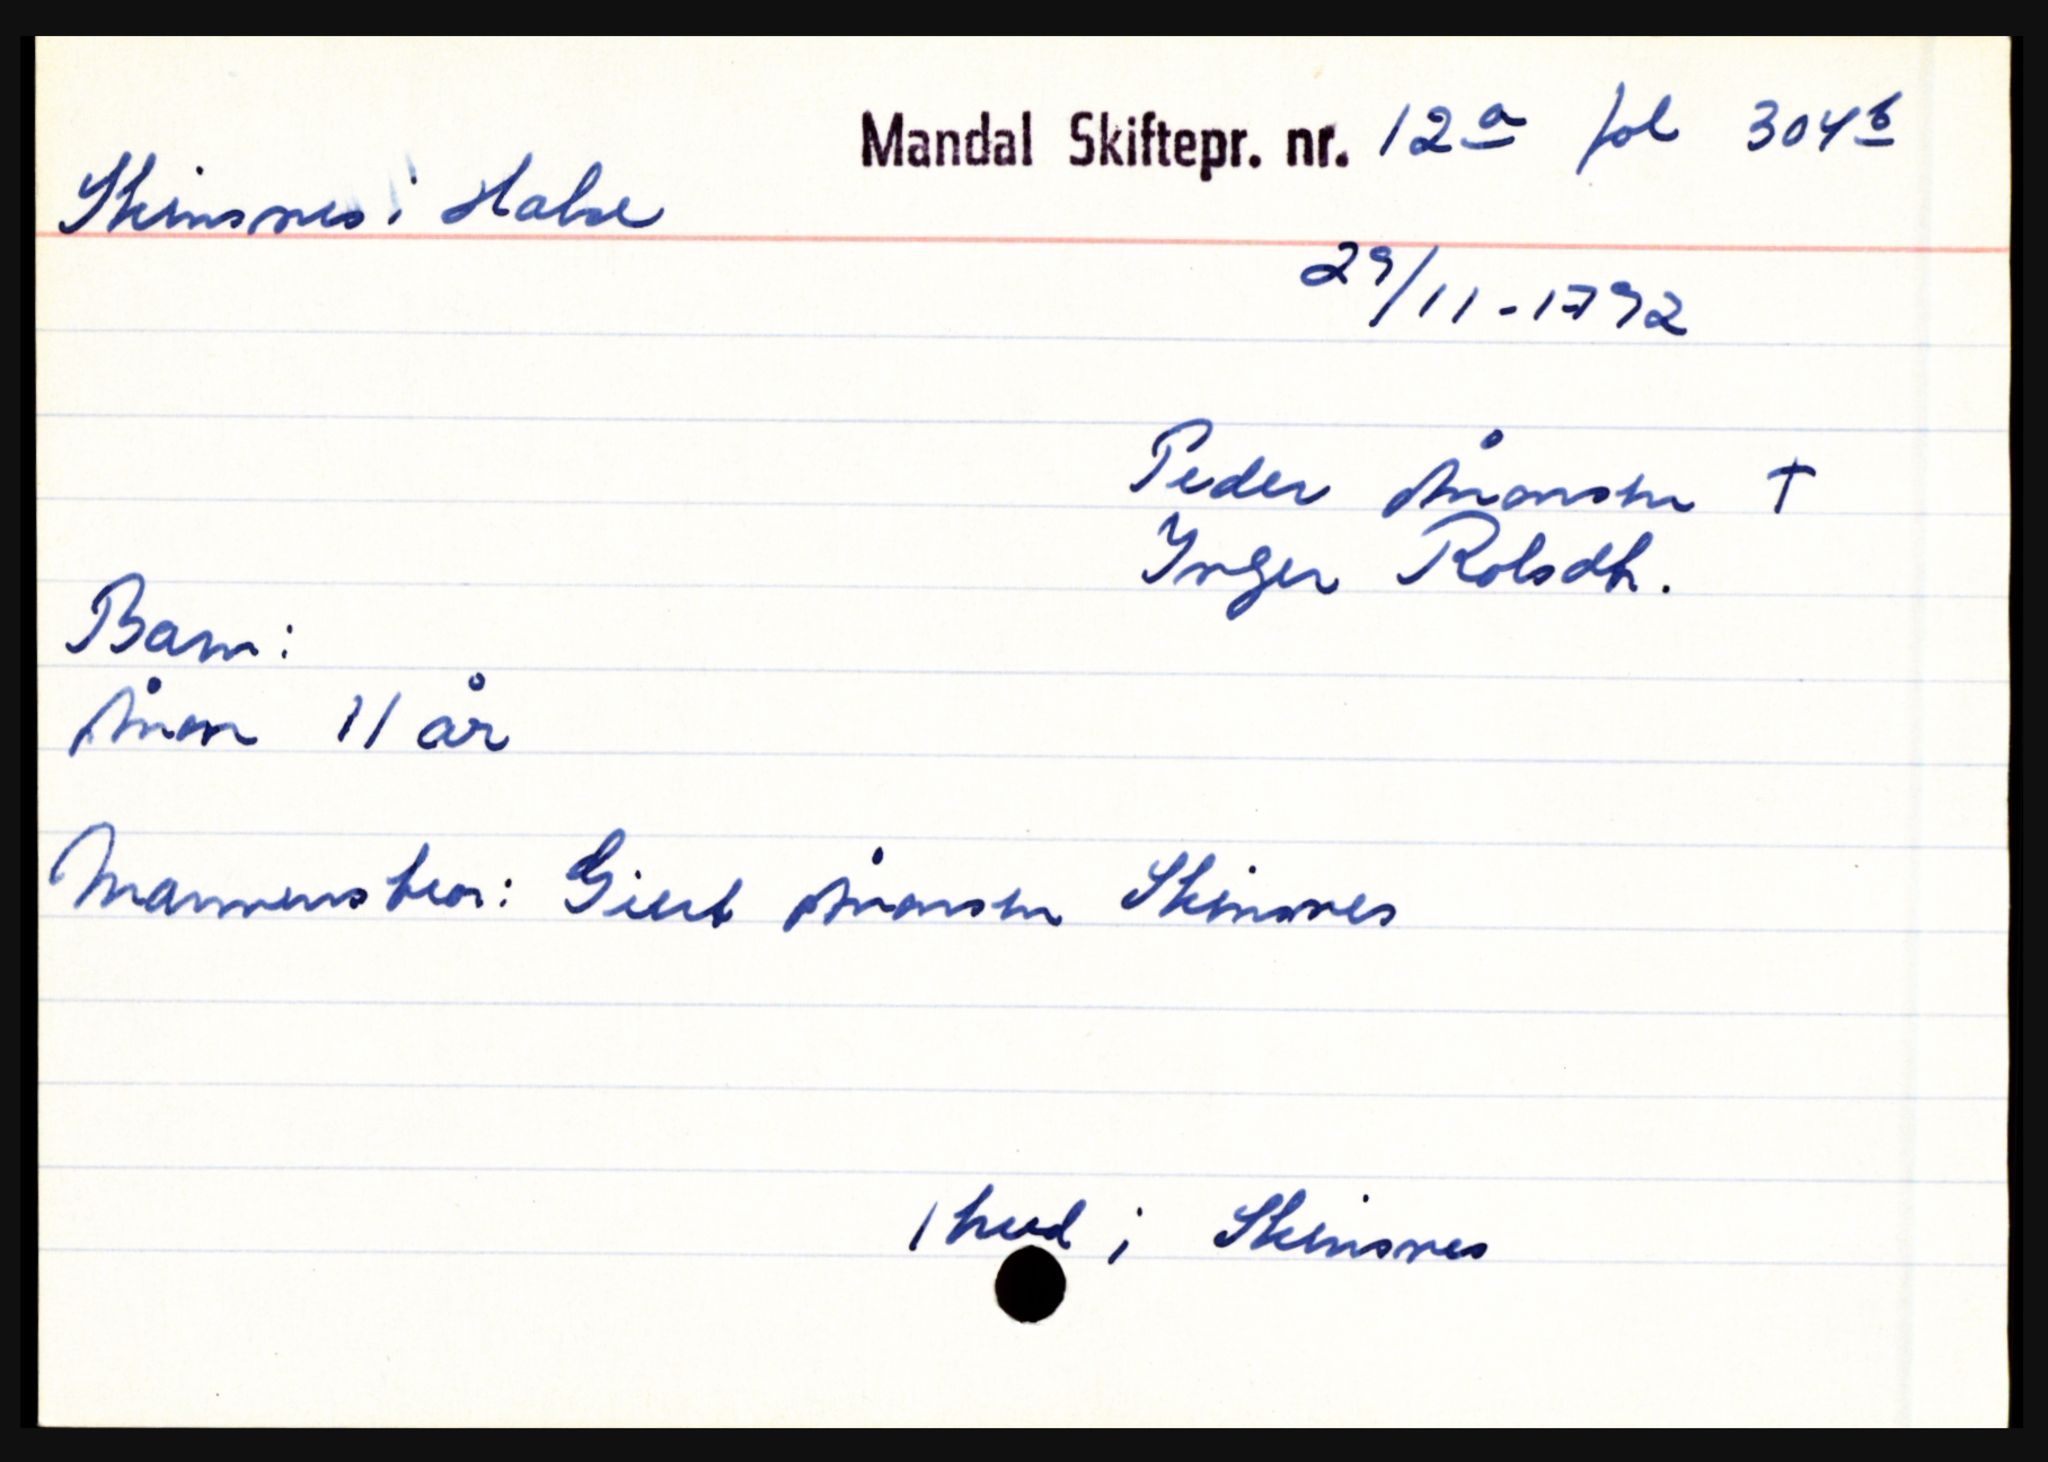 Mandal Skiftepr. nr. 12a fol 304b
Skinsnes i Halse
29/11-1792
Peder Ånonsen †
Inger Rolsdh.
Barn:
Ånon 11 år
Mannens bror: Giert Ånonsen Skinsnes
1 hud i Skinsnes